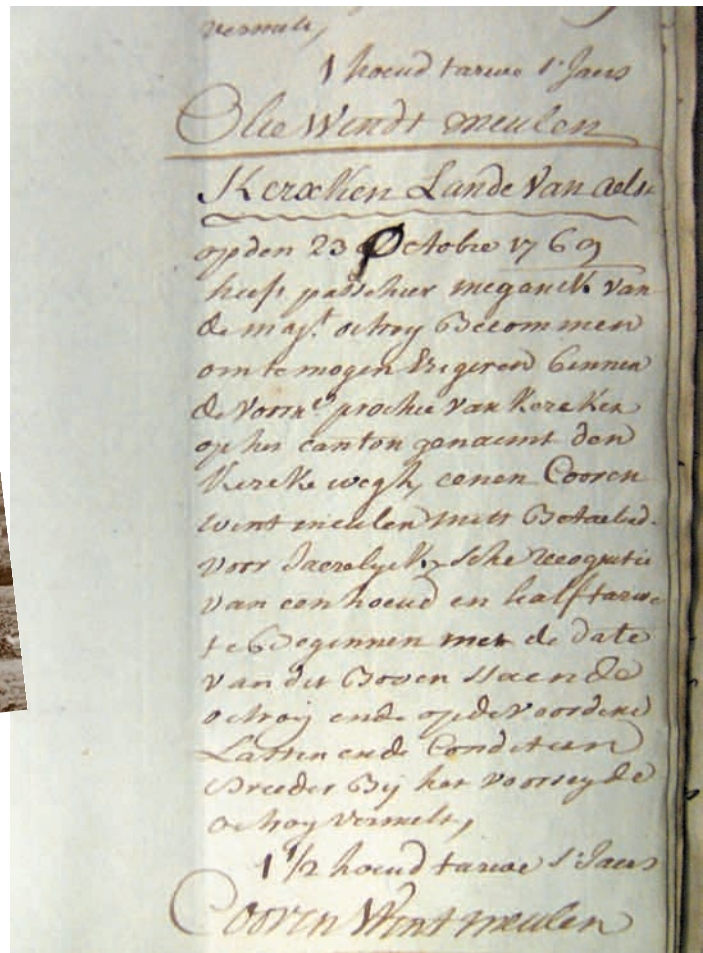 vermelt,
1 hoeud tarwe s'Jaers
Olie Windt meulen
Kerxken Lande Van aels
op den 23 Octobre 1769
heeft passchier meganck van
de maj.t octroy Becommen
om te mogen Erigeren binnen
de voorn.e prochie van Kercken
op het canton genaemt den
Kercke wegh, eenen Cooren
wint meulen mits Betaelend.
voor Jaerelyck.sche recognitie
van een hoeud en half tarwe
te Beginnen met de date
van dit Boven staende
octroy ende op de voordere
Lasten ende Conditien
Breeder By het voorseyde
octroy vermelt,
1 1/2 hoeud tarwe s'Jaers
Cooren Wint meulen